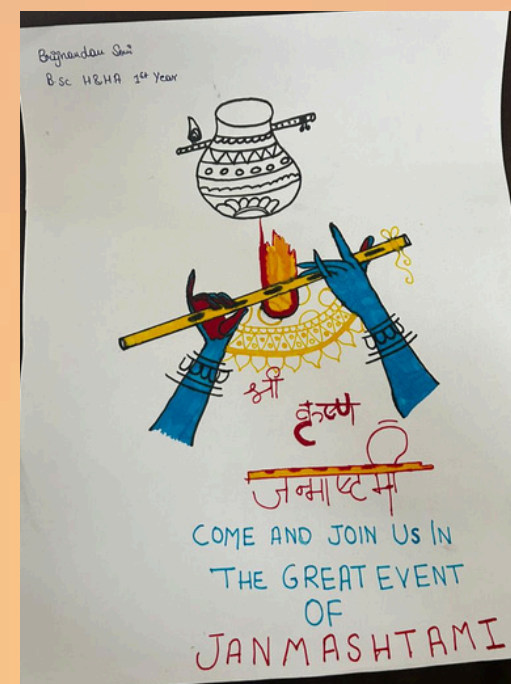 Brijnandan Soni
B Sc H&HA 1st Year
श्री
कृष्ण
जन्माष्टमी
COME AND JOIN US IN
THE GREAT EVENT
OF
JANMASHTAMI